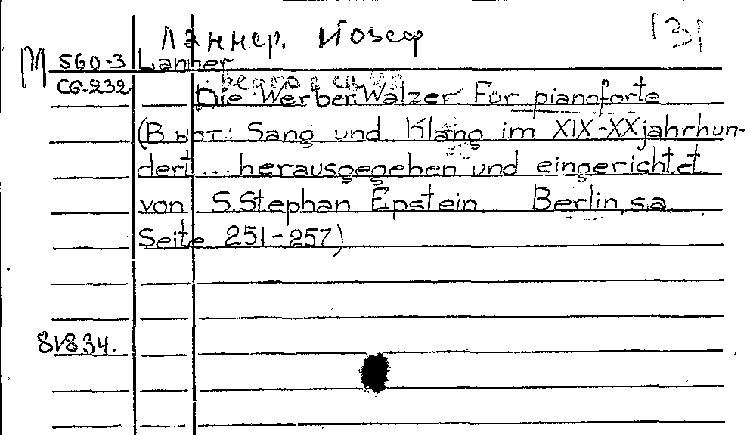 Ланнер. Йозеф [3]
М 560-3 Lanner
CG-232 Die Werber. Walzer Für pianoforte
(В нот.: Sang und Klang im XIX-XX jahrhun-
dert... herausgegeben und eingerichtet
von S. Stephan Epstein. Berlin, s.a.
Seite 251-257)
81834.